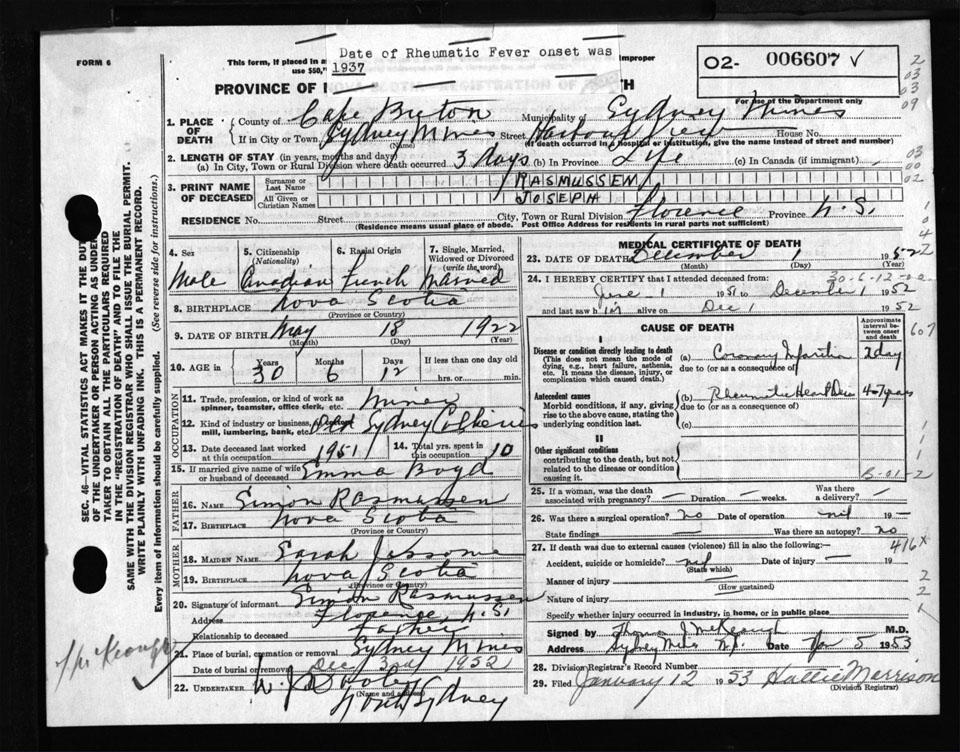 Date of Rheumatic Fever onset was
1937
FORM 6
This form, if placed in a
improper
use $50,
O2- 006607 √
PROVINCE OF
TH
For use of the Department only
1. PLACE OF DEATH
County of Cape Breton Municipality of Sydney Mines
If in City or Town, Sydney Mines Street Harbour View House No.
(Name) (If death occurred in a hospital or institution, give the name instead of street and number)
2. LENGTH OF STAY (in years, months and days)
(a) In City, Town or Rural Division where death occurred 3 days (b) In Province Life (c) In Canada (if immigrant)
3. PRINT NAME OF DECEASED
Surname or Last Name RASMUSSEN
All Given or Christian Names JOSEPH
RESIDENCE No. Street City, Town or Rural Division Florence Province N.S.
(Residence means usual place of abode. Post Office Address for residents in rural parts not sufficient)
4. Sex Male
5. Citizenship (Nationality) Canadian
6. Racial Origin French
7. Single, Married, Widowed or Divorced (write the word) Married
8. BIRTHPLACE Nova Scotia
(Province or Country)
9. DATE OF BIRTH May 18 1922
(Month) (Day) (Year)
10. AGE in Years 30 Months 6 Days 12 If less than one day old
hrs. or min.
OCCUPATION
11. Trade, profession, or kind of work as spinner, teamster, office clerk, etc. Miner
12. Kind of industry or business, mill, lumbering, bank, etc. Sydney Collieries
13. Date deceased last worked at this occupation 1951
14. Total yrs. spent in this occupation 10
15. If married give name of wife or husband of deceased Emma Boyd
FATHER
16. NAME Simon Rasmussen
17. BIRTHPLACE Nova Scotia
(Province or Country)
MOTHER
18. MAIDEN NAME Sarah
19. BIRTHPLACE Nova Scotia
(Province or Country)
20. Signature of informant Simon Rasmussen
Address Florence, N.S.
Relationship to deceased Father
21. Place of burial, cremation or removal Sydney Mines
Date of burial or removal Dec 3rd 1952
22. UNDERTAKER
(Name and address)
North Sydney
MEDICAL CERTIFICATE OF DEATH
23. DATE OF DEATH December 1 1952
(Month) (Day) (Year)
24. I HEREBY CERTIFY that I attended deceased from:
June 1 1951 to December 1 1952
and last saw him alive on Dec 1 1952
CAUSE OF DEATH
Approximate interval between onset and death
I
Disease or condition directly leading to death
(This does not mean the mode of dying, e.g., heart failure, asthenia, etc. It means the disease, injury, or complication which caused death.)
(a) Coronary Infarction 2 day
due to (or as a consequence of)
Antecedent causes
Morbid conditions, if any, giving rise to the above cause, stating the underlying condition last.
(b) Rheumatic Heart Disease
due to (or as a consequence of)
(c)
II
Other significant conditions
contributing to the death, but not related to the disease or condition causing it.
25. If a woman, was the death associated with pregnancy? — Duration — weeks. Was there a delivery? —
26. Was there a surgical operation? no Date of operation nil 19 —
State findings — Was there an autopsy? no
27. If death was due to external causes (violence) fill in also the following:—
Accident, suicide or homicide? nil Date of injury — 19
(State which)
Manner of injury —
(How sustained)
Nature of injury —
Specify whether injury occurred in industry, in home, or in public place
Signed by M.D.
Address Sydney Mines N.S. Date 5 1953
28. Division Registrar's Record Number
29. Filed January 12 1953 Hallie Morrison
(Division Registrar)
SEC. 46—VITAL STATISTICS ACT MAKES IT THE DUTY
OF THE UNDERTAKER OR PERSON ACTING AS UNDER
TAKER TO OBTAIN ALL THE PARTICULARS REQUIRED
IN THE "REGISTRATION OF DEATH" AND TO FILE THE
SAME WITH THE DIVISION REGISTRAR WHO SHALL ISSUE THE BURIAL PERMIT.
WRITE PLAINLY WITH UNFADING INK. THIS IS A PERMANENT RECORD.
Every item of information should be carefully supplied. (See reverse side for instructions.)